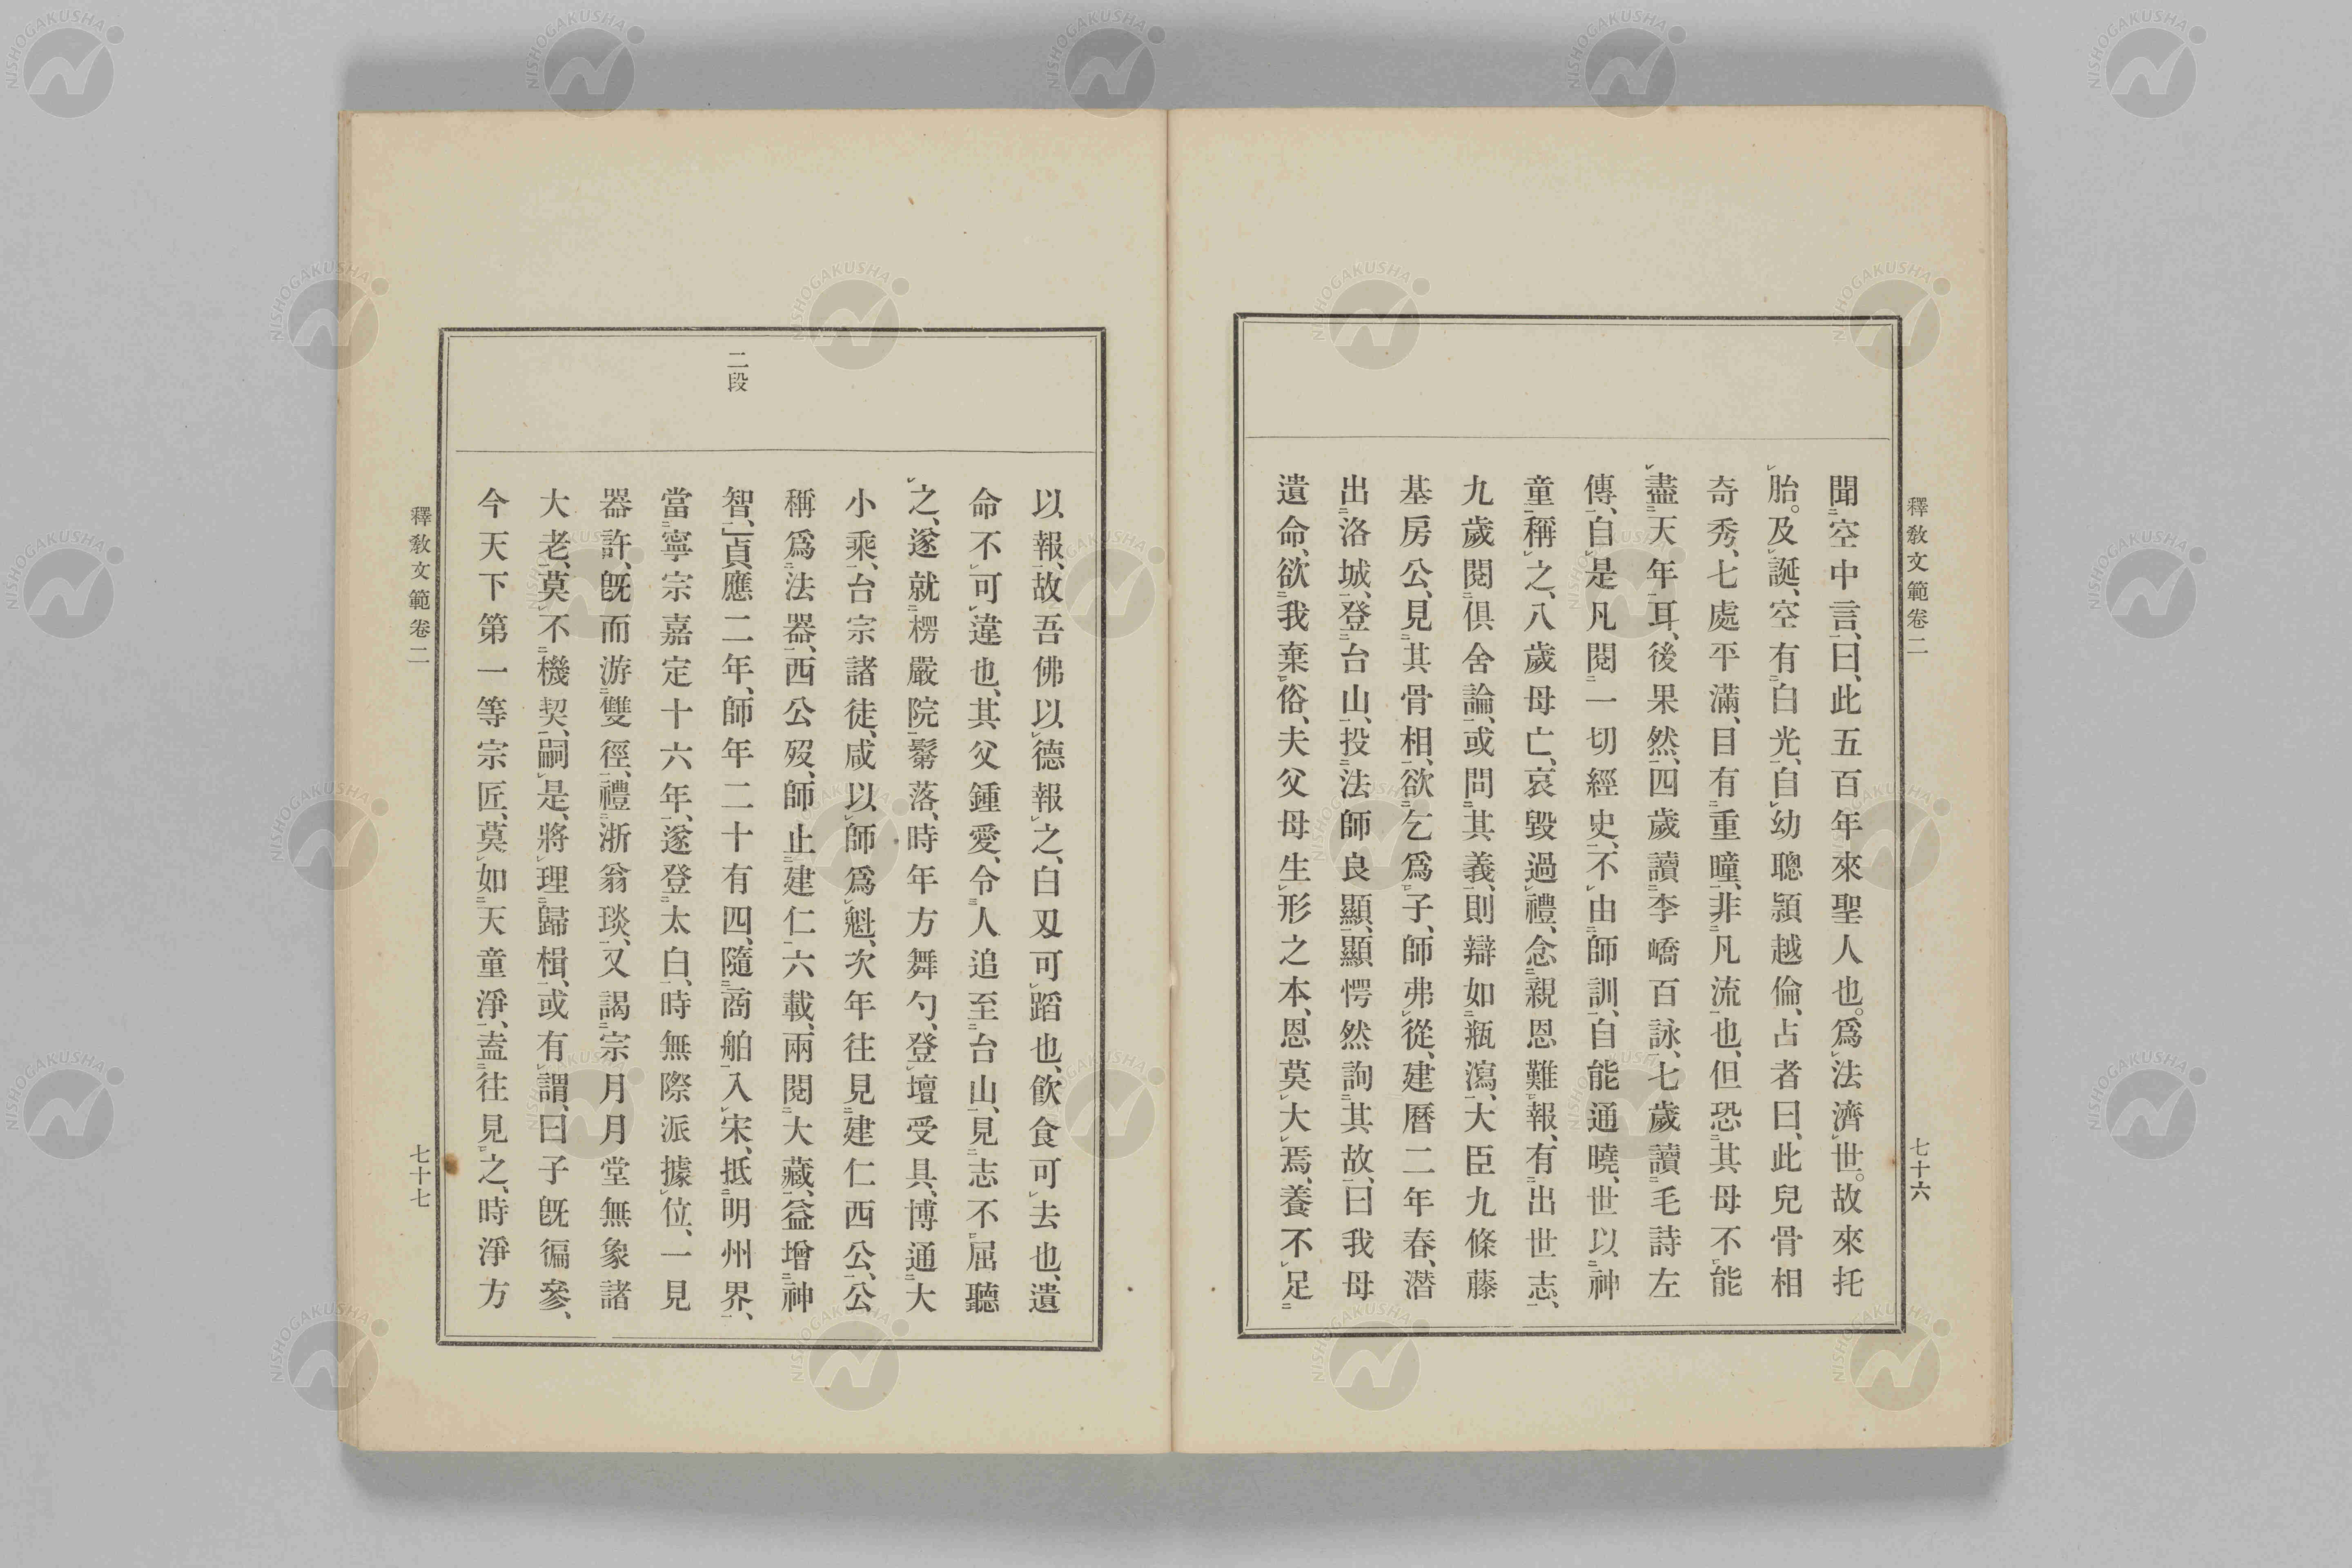 釋敎文範卷二
七十六
聞空中言、曰、此五百年來聖人也。爲法濟世。故來托
胎。及誕、空有白光、自幼聰頴越倫、占者曰、此兒骨相
奇秀、七處平滿、目有重瞳、非凡流也、但恐其母不能
盡天年耳、後果然、四歲讀李嶠百詠、七歲讀毛詩左
傳、自是凡閱一切經史、不由師訓、自能通曉、世以神
童稱之、八歲母亡、哀毀過禮、念親恩難報、有出世志、
九歲閱俱舍論、或問其義、則辯如瓶瀉、大臣九條藤
基房公、見其骨相、欲乞爲子、師弗從、建曆二年春、潛
出洛城、登台山、投法師良顯、顯愕然詢其故、曰我母
遺命、欲我棄俗、夫父母生形之本、恩莫大焉、養不足
以報、故吾佛以德報之、白刄可蹈也、飮食可去也、遺
命不可違也、其父鍾愛、令人追至台山、見志不屈聽
之、遂就楞嚴院鬀落、時年方舞勺、登壇受具、博通大
小乘、台宗諸徒、咸以師爲魁、次年往見建仁西公、公
稱爲法器、西公歿、師止建仁六載、兩閱大藏、益增神
二段
智、」貞應二年、師年二十有四、隨商舶入宋、抵明州界、
當寧宗嘉定十六年、遂登太白、時無際派據位、一見
器許、旣而游雙徑、禮浙翁琰、又謁宗月月堂無象諸
大老、莫不機契、嗣是、將理歸楫、或有謂、曰子旣徧參、
今天下第一等宗匠、莫如天童淨、盍往見之、時淨方
釋敎文範卷二
七十七
NISHOGAKUSHA